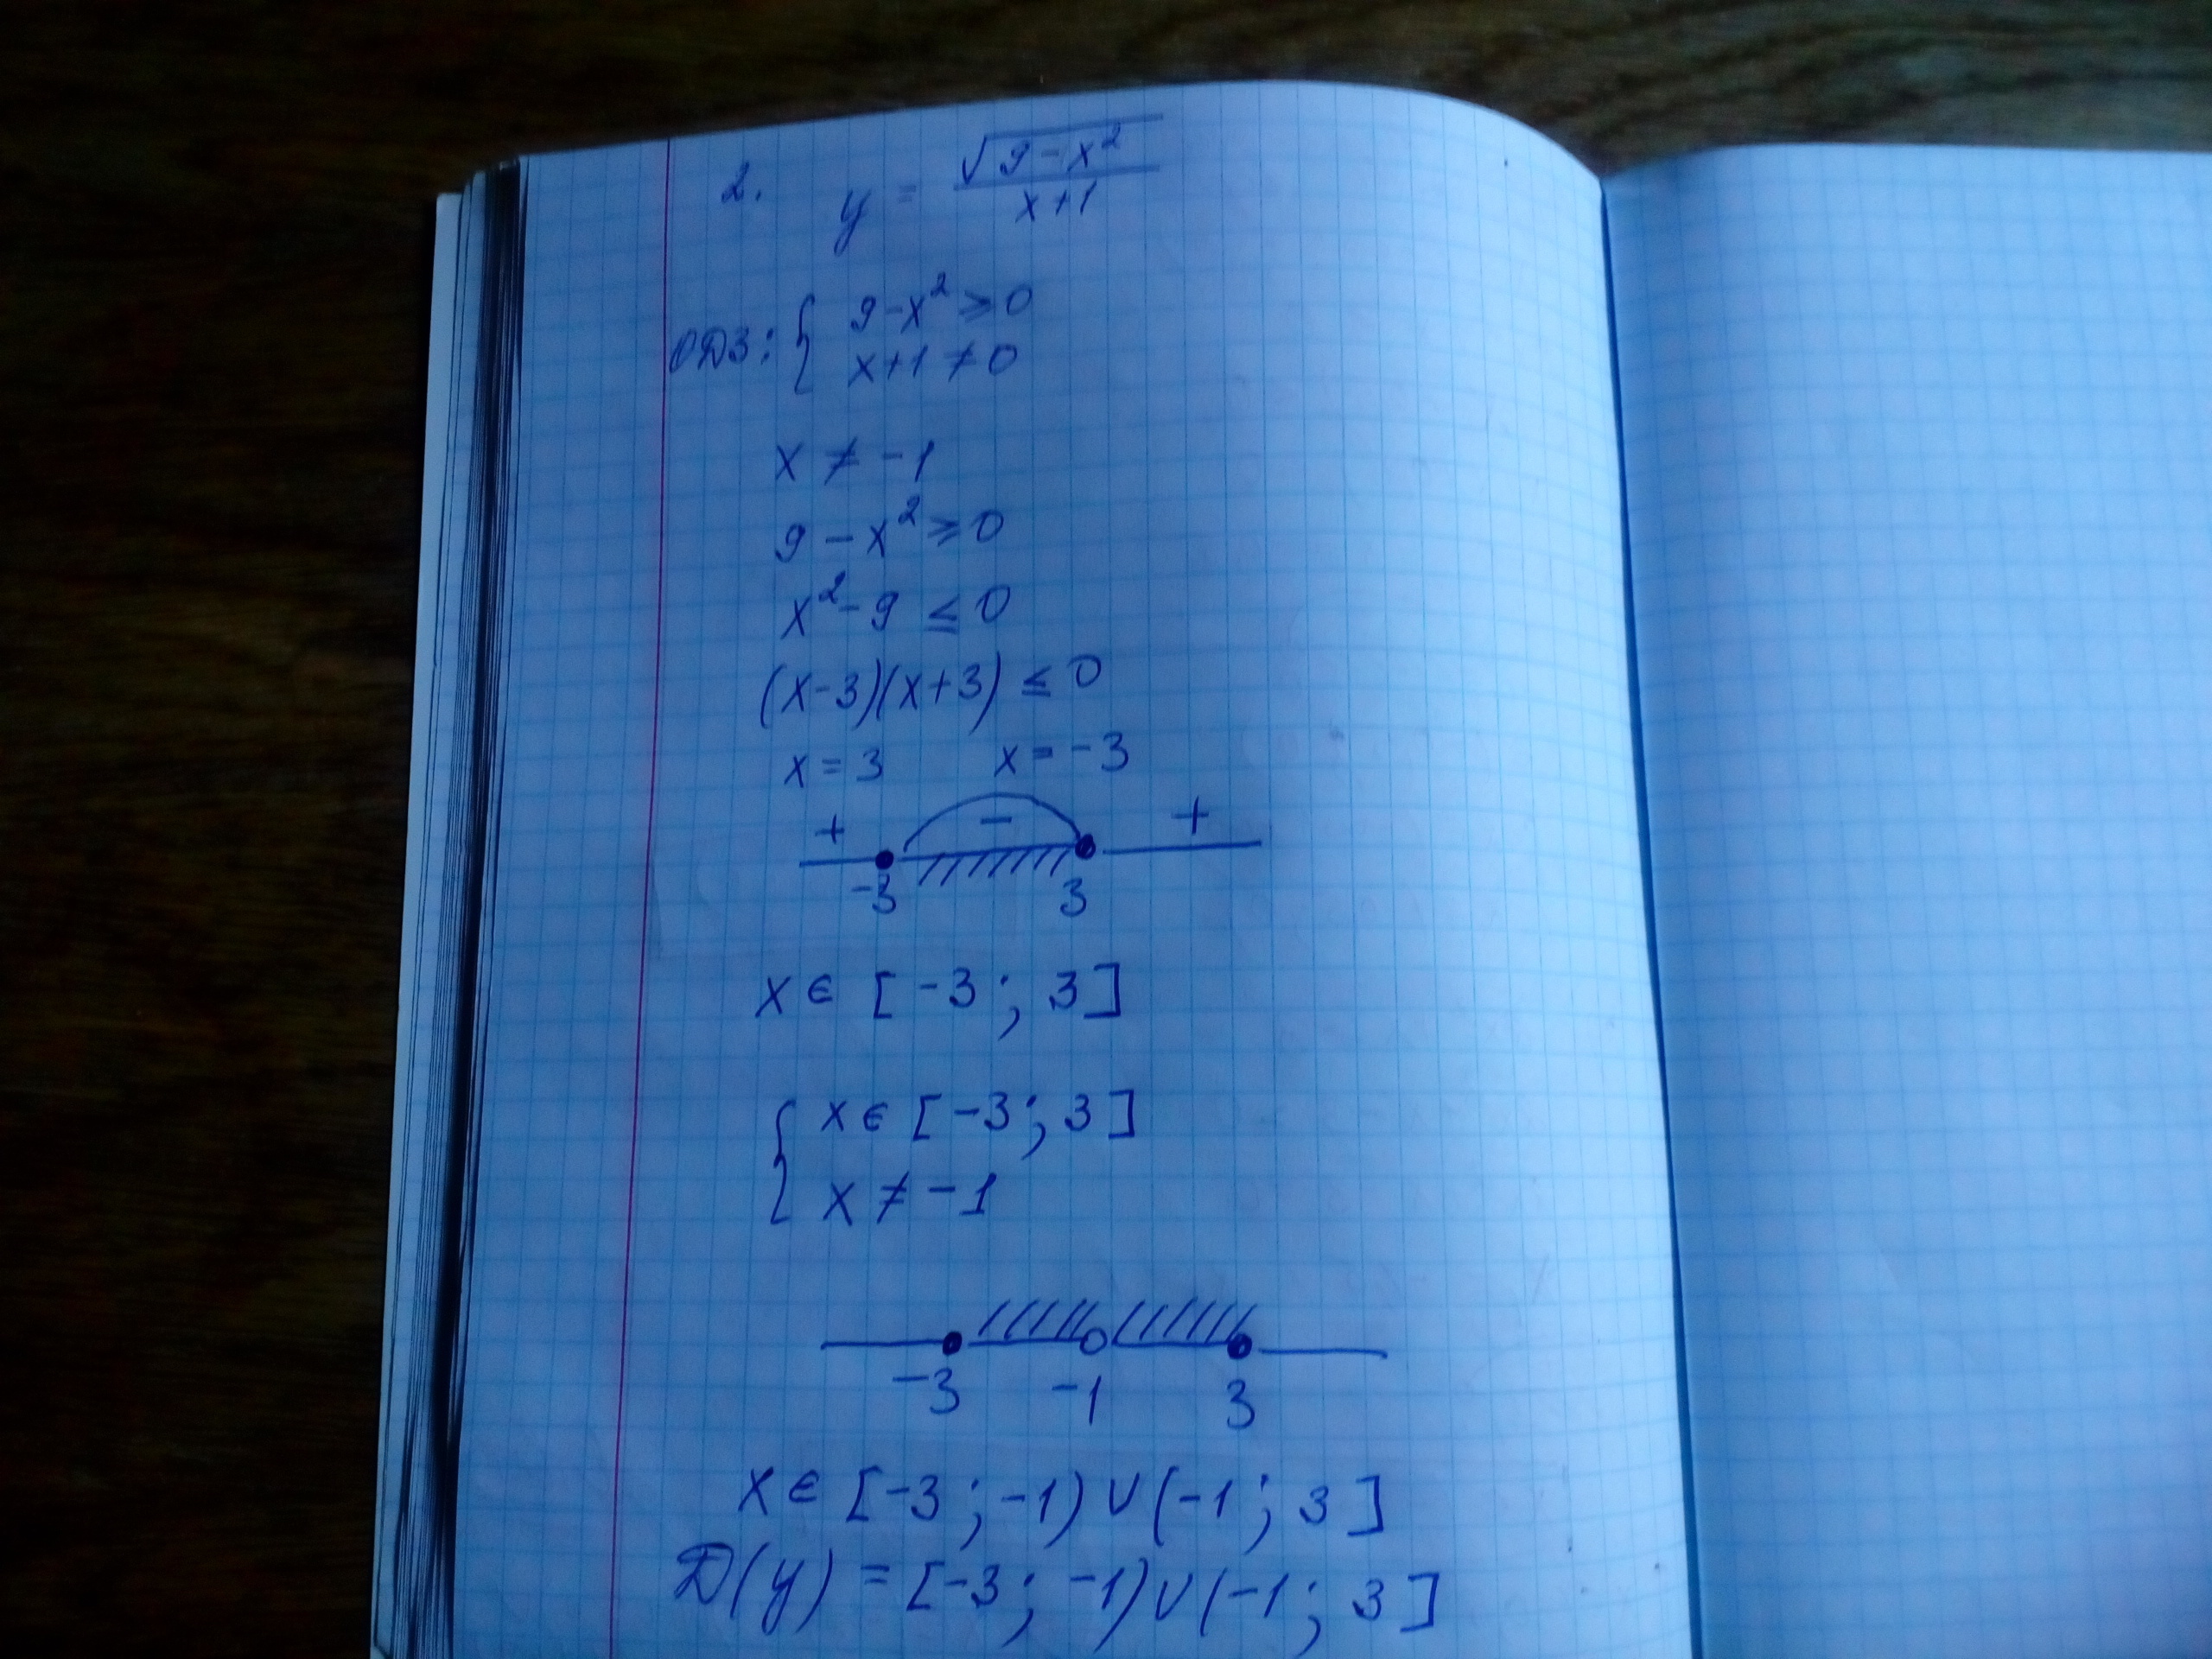 2. y = √(9-x²)/(x+1)
ОДЗ: { 9-x² ⩾ 0
x+1 ≠ 0
x ≠ -1
9 - x² ⩾ 0
x² - 9 ≤ 0
(x-3)(x+3) ≤ 0
x = 3 x = -3
+ - +
-3 3
x ∈ [-3; 3]
{ x ∈ [-3; 3]
x ≠ -1
-3 -1 3
x ∈ [-3; -1) ∪ (-1; 3]
D(y) = [-3; -1) ∪ (-1; 3]